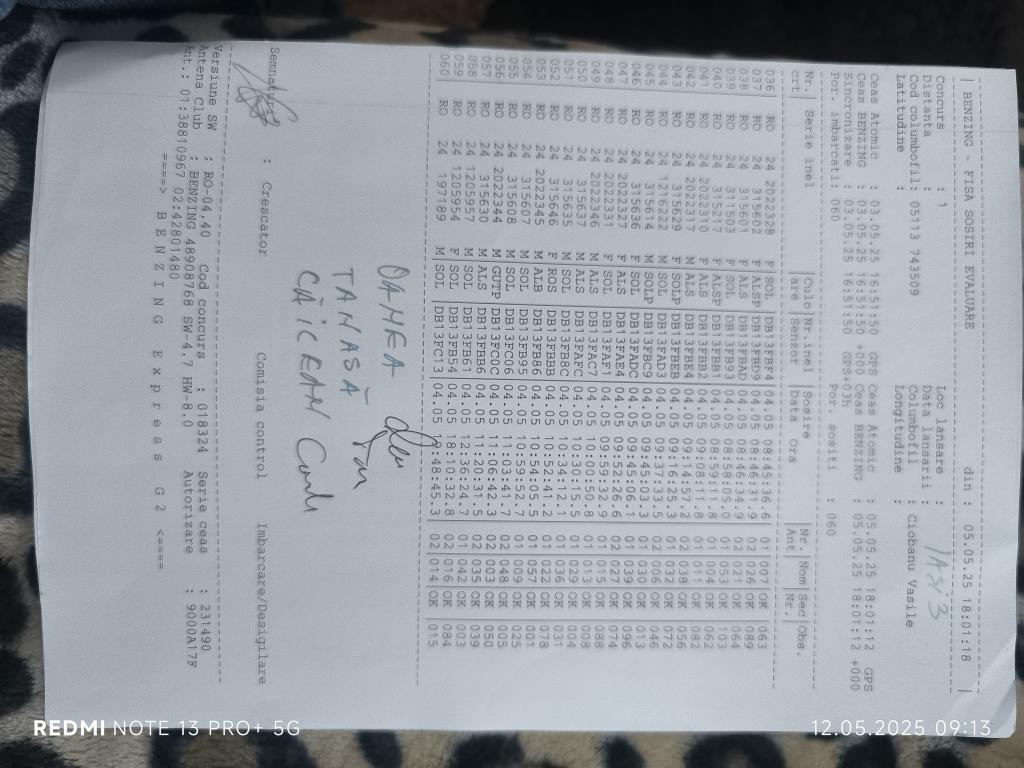 | BENZING - FISA SOSIRI EVALUARE din : 05.05.25 18:01:18 |
Concurs : 1 Loc lansare : IASI 3
Distanta : Data lansarii :
Cod columbofil: 05113 743509 Columbofil : Ciobanu Vasile
Latitudine : Longitudine :
Ceas Atomic : 03.05.25 16:51:50 GPS Ceas Atomic : 05.05.25 18:01:12 GPS
Ceas BENZING : 03.05.25 16:51:50 +000 Ceas BENZING : 05.05.25 18:01:12 +000
Sincronizare : 03.05.25 16:51:50 GPS+03h
Por. imbarcati: 060 Por. sositi : 060
Nr. | Serie inel | Culo | Nr.inel | Sosire | Nr. | Nom | Sec | Obs.
crt | are | Senzor | Data Ora | Ant | Nr.
036 RO 24 2022328 F SOL DB13FBF4 04.05 08:45:36.6 01 007 OK 063
037 RO 24 315602 F ALSP DB13FBD9 04.05 08:46:31.9 02 026 OK 089
038 RO 24 315601 F ALS DB13FBAD 04.05 08:46:34.9 02 021 OK 064
039 RO 24 311503 F SOL DB13FB93 04.05 08:50:05.0 01 053 OK 103
040 RO 24 315217 F ALSP DB13FBB1 04.05 08:59:11.8 01 004 OK 062
041 RO 24 2022310 F ALS DB13FBB2 04.05 09:08:11.8 01 011 OK 082
042 RO 24 2022317 M ALS DB13FBE4 04.05 09:14:57.2 02 038 OK 056
043 RO 24 315629 F SOLP DB13FBEB 04.05 09:16:25.3 01 017 OK 072
044 RO 24 1216222 M SOL DB13FAD3 04.05 09:37:33.5 02 006 OK 046
045 RO 24 315614 M SOLP DB13FBC9 04.05 09:45:03.3 01 030 OK 013
046 RO 24 315636 F SOL DB13FADC 04.05 09:45:06.1 01 039 OK 096
047 RO 24 2022327 F ALS DB13FAE4 04.05 09:52:26.6 02 027 OK 074
048 RO 24 2022331 F SOL DB13FAF1 04.05 09:59:32.9 01 015 OK 088
049 RO 24 2022346 M ALS DB13FAC7 04.05 10:00:50.8 01 013 OK 008
050 RO 24 315637 M ALS DB13FAFC 04.05 10:30:15.5 01 029 OK 004
051 RO 24 315635 M SOL DB13FB8C 04.05 10:34:12.1 01 026 OK 031
052 RO 24 315646 F ROS DB13FBBB 04.05 10:52:41.2 01 022 OK 078
053 RO 24 2022345 M ALB DB13FB86 04.05 10:54:05.5 01 007 OK 001
054 RO 24 315607 M SOL DB13FB95 04.05 10:59:52.7 01 009 OK 025
055 RO 24 315608 M SOL DB13FC06 04.05 11:03:41.7 02 048 OK 005
056 RO 24 2022344 M GUTP DB13FC0C 04.05 11:06:42.3 02 008 OK 050
057 RO 24 315630 M ALS DB13FBB6 04.05 11:20:31.5 02 025 OK 039
058 RO 24 1205957 M SOL DB13FB61 04.05 12:36:34.7 01 042 OK 003
059 RO 24 1205954 F SOL DB13FB54 04.05 18:10:32.8 02 016 OK 084
060 RO 24 197189 M SOL DB13FC13 04.05 19:48:45.3 02 014 OK 015
OAMEA
TANASĂ
Semnatura : Crescator Comisia control Imbarcare/Desigilare
Versiune SW : RO-04.40 Cod concurs : 018324 Serie ceas : 231490
Antena Club : BENZING 48908768 SW-4.7 HW-8.0 Autorizare : 9000A17F
Ant.: 01:38810967 02:42801480
====> B E N Z I N G E x p r e s s G 2 <====
REDMI NOTE 13 PRO+ 5G
12.05.2025 09:13